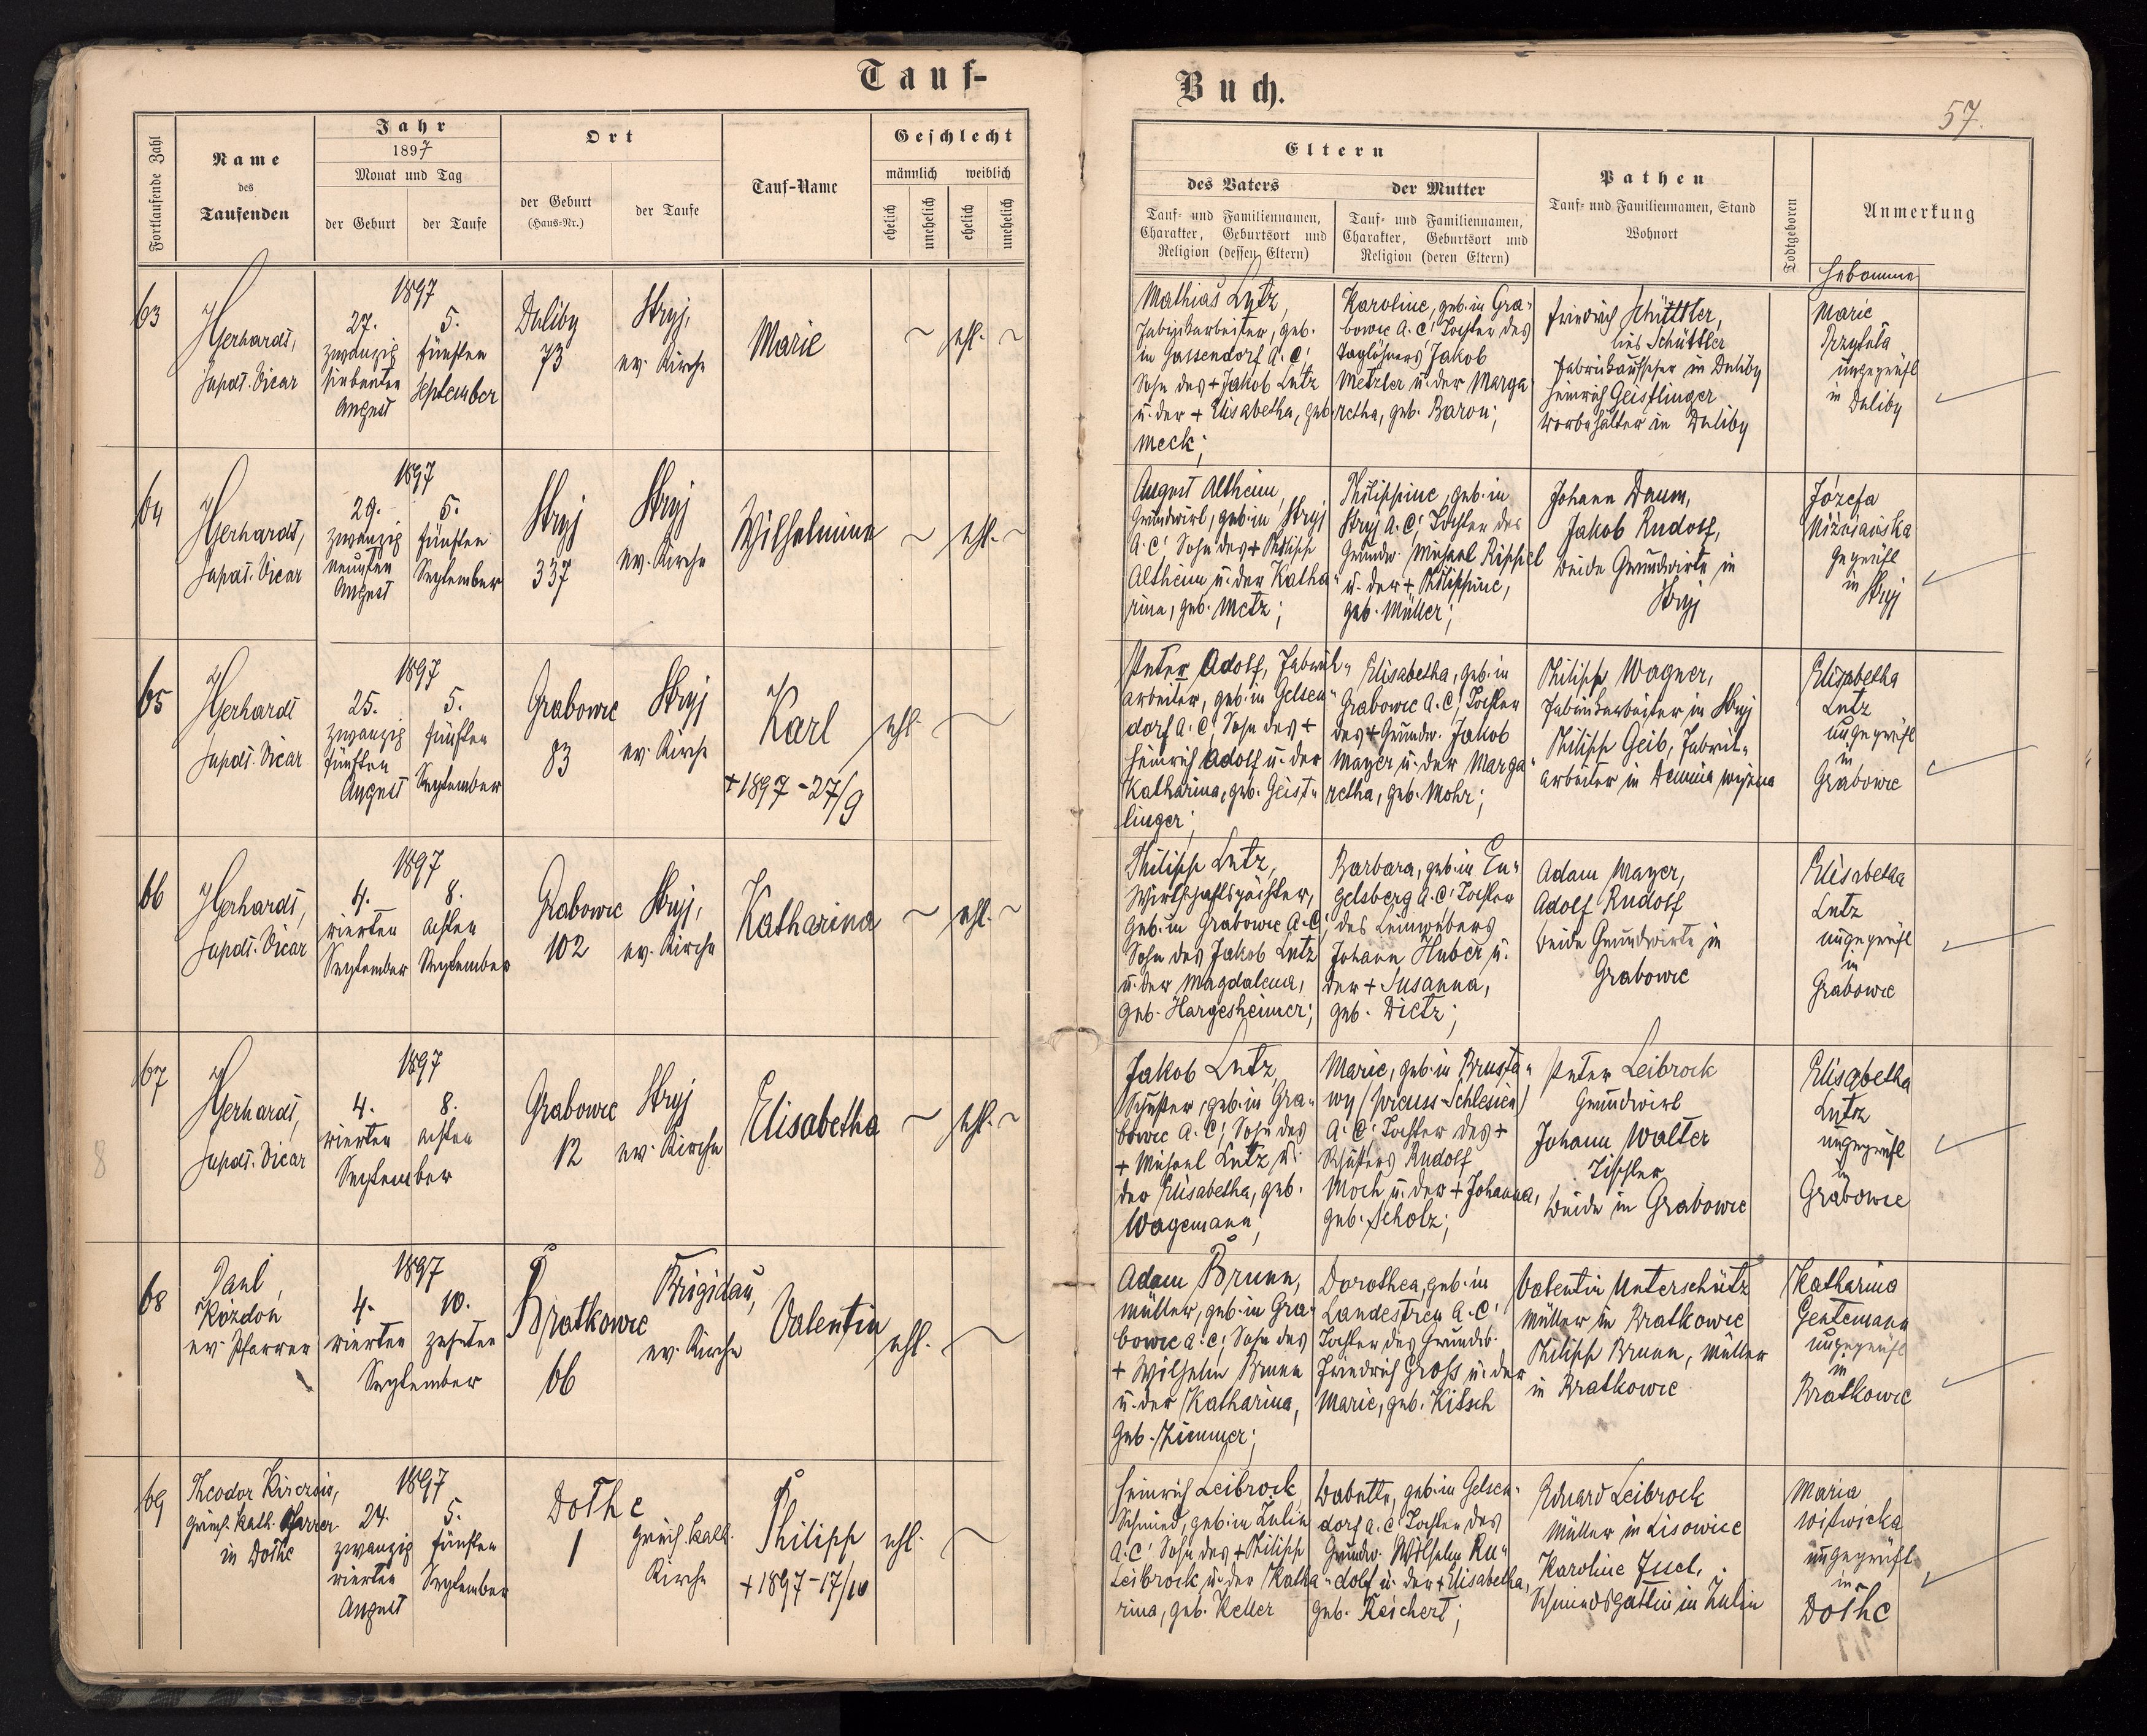 Tauf-
Buch.
57.
Fortlaufende Zahl
Name
des
Taufenden
Jahr
1897
Monat und Tag
der Geburt
der Taufe
Ort
der Geburt
(Haus-Nr.)
der Taufe
Tauf-Name
Geschlecht
männlich
weiblich
ehelich
unehelich
ehelich
unehelich
Eltern
des Vaters
Tauf- und Familiennamen,
Charakter, Geburtsort und
Religion (dessen Eltern)
der Mutter
Tauf- und Familiennamen,
Charakter, Geburtsort und
Religion (deren Eltern)
Pathen
Tauf- und Familiennamen, Stand
Wohnort
Todtgeboren
Anmerkung
Hebamme
63
Gerhardt,
Supdt. Vicar
1897
27.
zwanzig
siebenten
August
5.
fünften
September
Duliby
73
Stryj,
ev. Kirche
Marie
ehl.
Mathias Lutz,
Fabriksarbeiter, geb.
in Gassendorf A. C.,
Sohn des + Jakob Lutz
u. der + Elisabetha, geb.
Meck;
Karoline, geb. in Gra-
bowic A. C., Tochter des
Taglöhners Jakob
Metzler u. der Marga-
retha, geb. Baron;
Friedrich Schüttler,
Fabriksaufseher in Duliby
Heinrich Geistlinger
in Duliby
Marie
ungeprüft
in Duliby
64
Gerhardt,
Supdt. Vicar
1897
29.
zwanzig
neunten
August
5.
fünften
September
Stryj
337
Stryj
ev. Kirche
Wilhelmine
ehl.
August Altheim,
Grundwirt, geb. in Stryj
A. C., Sohn des + Philipp
Altheim u. der Katha-
rina, geb. Metz;
Philippine, geb. in
Stryj A. C., Tochter des
Grundw. Michael Rippel
u. der + Philippine,
geb. Müller;
Johann Daum,
Jakob Rudolf,
beide Grundwirte in
Stryj
Józefa
geprüft
in Stryj
65
Gerhardt
Supdt. Vicar
1897
25.
zwanzig
fünften
August
5.
fünften
September
Grabowic
83
Stryj
ev. Kirche
Karl
+ 1897-27/9
ehl.
Peter Adolf, Fabriks-
arbeiter, geb. in Gelsen-
dorf A. C., Sohn des +
Heinrich Adolf u. der
Katharina, geb. Geist-
linger;
Elisabetha, geb. in
Grabowic A. C., Tochter
des + Grundw. Jakob
Mayer u. der Marga-
retha, geb. Mohr;
Philipp Wagner,
Fabriksarbeiter in Stryj
Philipp Geib, Fabriks-
arbeiter in Demnia wyżna
Elisabetha
Lutz
ungeprüft
in
Grabowic
66
Gerhardt,
Supdt. Vicar
1897
4.
vierten
September
8.
achten
September
Grabowic
102
Stryj,
ev. Kirche
Katharina
ehl.
Philipp Lutz,
Wirtschaftspächter,
geb. in Grabowic A. C.,
Sohn des Jakob Lutz
u. der Magdalena,
geb. Hargesheimer;
Barbara, geb. in En-
gelsberg A. C., Tochter
des Leinwebers
Johann Huber u.
der + Susanna,
geb. Dietz;
Adam Mayer,
Adolf Rudolf
beide Grundwirte in
Grabowic
Elisabetha
Lutz
ungeprüft
in
Grabowic
67
Gerhardt,
Supdt. Vicar
1897
4.
vierten
8.
achten
September
Grabowic
12
Stryj
ev. Kirche
Elisabetha
ehl.
Jakob Lutz,
Schuster, geb. in Gra-
bowic A. C., Sohn des
+ Michael Lutz u.
der Elisabetha, geb.
Wagemann;
Marie, geb. in Brusta-
wy (preuss-Schlesien)
A. C., Tochter des +
Schusters Rudolf
Moch u. der + Johanna,
geb. Scholz;
Peter Leibrock
Grundwirt
Johann Walter
Tischler
beide in Grabowic
Elisabetha
Lutz
ungeprüft
in
Grabowic
8
68
Paul
Kozdoń
ev. Pfarrer
1897
4.
vierten
10.
zehnten
September
Bratkowce
66
Brigidau,
ev. Kirche
Valentin
ehl.
Adam Brunn,
Müller, geb. in Gra-
bowic A. C., Sohn des
+ Wilhelm Brunn
u. der Katharina,
geb. Zimmer;
Dorothea, geb. in
Landestreu A. C.
Tochter des Grundw.
Friedrich Gross u. der
Marie, geb. Kitsch
Valentin Unterschütz
Müller in Bratkowce
Philipp Brunn, Müller
in Bratkowce
Katharina
Gentemann
ungeprüft
in
Bratkowce
69
Theodor
griech. kath. Pfarrer
in Dołhe
1897
24.
zwanzig
vierten
August
5.
fünften
September
Dołhe
1
griech. kath.
Kirche
Philipp
+ 1897-17/10
ehl.
Heinrich Leibrock,
Schmied, geb. in Zulin
A. C., Sohn des + Philipp
Leibrock u. der Katha-
rina, geb. Keller
Babette, geb. in Gelsen-
dorf A. C., Tochter des
Grundw. Wilhelm Ru-
dolf u. der + Elisabetha,
geb. Reichert;
Eduard Leibrock
Müller in Lisowice
Karoline Juch,
Schmiedsgattin in Zulin
Maria
Witwicka
ungeprüft
in
Dołhe